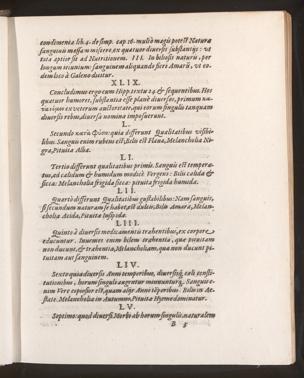 condimenta lib. 4. de simp. cap. 16. multò magis potest Naturæ
sanguineū massam miscere ex quatuor diuersis substantijs: vt
tota aptior sit ad Nutritionem. III. In beliosis naturis, per
longum ieiunium: sanguinem aliquando fieri Amarū, vt eo-
dem loco à Galeno dicitur.
XLIX.
Concludimus ergo cum Hipp. textu 24. & sequentibus. Hos
quatuor humores, substantia esse planè diuersos, primum na-
turæ ipsius ac veterum auctoritate, qui eorum singulis tanquam
diuersis rebus, diuersa nomina imposuerunt.
L.
Secundo κατὰ φύσιν: quia differunt Qualitatibus visibi-
libus. Sanguis enim rubens est, Bilis est Flaua, Melancholia Ni-
gra, Pituita Alba.
LI.
Tertio differunt qualitatibus primis. Sanguis est tempera-
tus, ad calidum & humidum modicè Vergens: Bilis calida &
sicca: Melancholia frigida sicca: pituita frigida humida.
LII.
Quartò differunt Qualitatibus gustabilibus: Nam sanguis,
si secundum naturam se habet, est dulcis: Bilis Amara, Melan-
cholia Acida, Pituita Insipida.
LIII.
Quintò à diuersis medicamentis trahentibus, ex corpore
educuntur. Inuenies enim bilem trahentia, quæ pituitam
non ducunt, & trahentia, Melancholiam, quæ non ducunt pi-
tuitam aut sanguinem.
LIV.
Sexto quia diuersis Anni temporibus, diuersisq́; cæli consti-
tutionibus, horum singuli augentur minuunturq́;. Sanguis e-
nim Vere copiosior est, quam alijs Anni tēporibus. Bilis in Ae-
state. Melancholia in Autumno, Pituita Hyeme dominatur.
LV.
Septimo: quod diuersi Morbi ab horum singulis naturalem
B 3